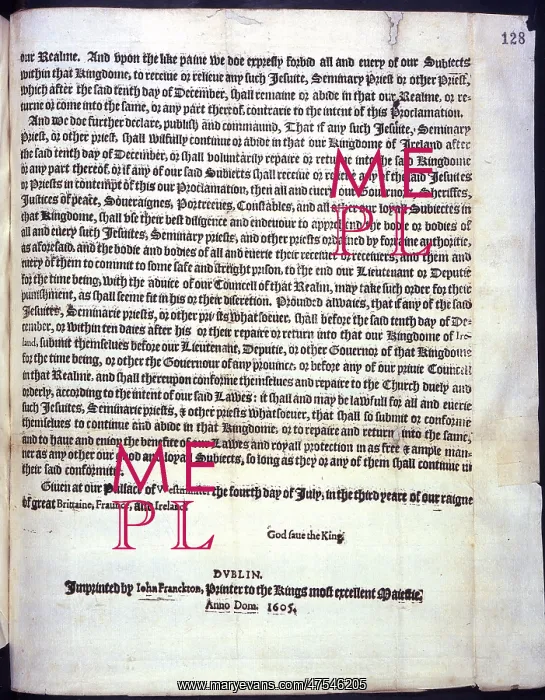 128
our Realme. And vpon the like paine we doe expresly forbid all and euery of our Subiects
within that Kingdome, to receiue or relieue any such Jesuite, Seminary Priest or other Priest,
which after the said tenth day of December, shall remaine or abide in that our Realme, or re-
turne or come into the same, or any part therof, contrarie to the intent of this Proclamation.
And we doe further declare, publish and commaund, That if any such Jesuite, Seminary
Priest, or other priest, shall wilfully continue or abide in that our Kingdome of Ireland after
the said tenth day of December, or shall voluntarily repaire or returne into the said Kingdome
or any part thereof, or if any of our said Subiects shall receiue or any of the said Jesuites
or Priests in contempt of this our Proclamation, then all and euery our Gouernors, Sheriffes,
Justices of peace, Soueraignes, Portreeues, Constables, and all other our loyall Subiectes in
that Kingdome, shall vse their best diligence and endeuour to apprehend the bodie or bodies of
all and euery such Jesuites, Seminary priests, and other priests ordained by forraine authoritie,
as aforesaid, and the bodie and bodies of all and euerie their receiuers, and them and
euery of them to commit to some safe and streight prison, to the end our Lieutenant or Deputie
for the time being, with the aduice of our Councell of that Realm, may take such order for their
punishment, as shall seeme fit in his or their discretion. Prouided alwaies, that if any of the said
Jesuites, Seminarie priests, or other priests whatsoeuer, shall before the said tenth day of De-
cember, or within ten daies after his or their repaire or return into that our Kingdome of Ire-
land, submit themselues before our Lieutenant, Deputie, or other Gouernor of that Kingdome
for the time being, or other the Gouernour of any prouince, or before any of our priuie Councell
in that Realme, and shall thereupon conforme themselues and repaire to the Church duely and
orderly, according to the intent of our said Lawes: it shall and may be lawfull for all and euerie
such Jesuites, Seminarie priests, & other priests whatsoeuer, that shall so submit or conforme
themselues to continue and abide in that Kingdome, or to repaire and return into the same,
and to haue and enjoy the benefite of our Lawes and royall protection in as free & ample man-
ner as any other our good and loyall Subiects, so long as they or any of them shall continue in
their said conformitie.
Giuen at our Pallace of Westminster the fourth day of July, in the third yeare of our raigne
of great Brittaine, Fraunce, and Ireland.
God saue the King.
DVBLIN.
Imprinted by Iohn Franckton, Printer to the Kings most excellent Maiestie,
Anno Dom. 1605.
ME
PL
ME
PL
www.maryevans.com/47546205